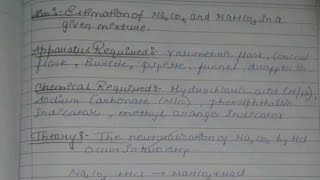 Aim:- Estimation of Na2CO3 and NaHCO3 in a
given mixture.
Apparatus Required:- Volumetric flask, Conical
flask, burette, pipette, funnel, dropper
Chemical Required:- Hydrochloric acid (N/10),
sodium carbonate (N/10), phenolphthalein
Indicator, methyl orange Indicator
Theory:- The neutralization of Na2CO3 by HCl
occurs in two step
Na2CO3 + HCl → NaHCO3 + NaCl